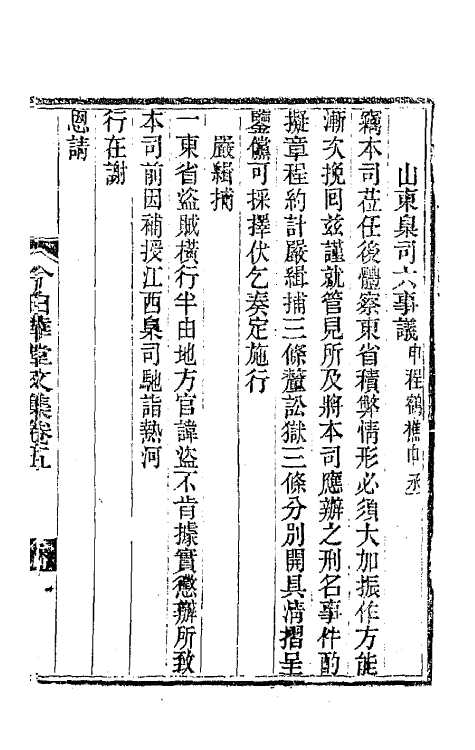 山東臬司六事議申程鶴樵中丞
竊本司莅任後體察東省積弊情形必須大加振作方能
漸次挽囘兹謹就管見所及將本司應辦之刑名事件酌
擬章程約計嚴緝捕三條釐訟獄三條分別開具清摺呈
鑒儻可採擇伏乞奏定施行
嚴緝捕
一東省盜賊橫行半由地方官諱盜不肯據實懲辦所致
本司前因補授江西臬司馳詣熱河
行在謝
恩請
今白華堂文集卷五